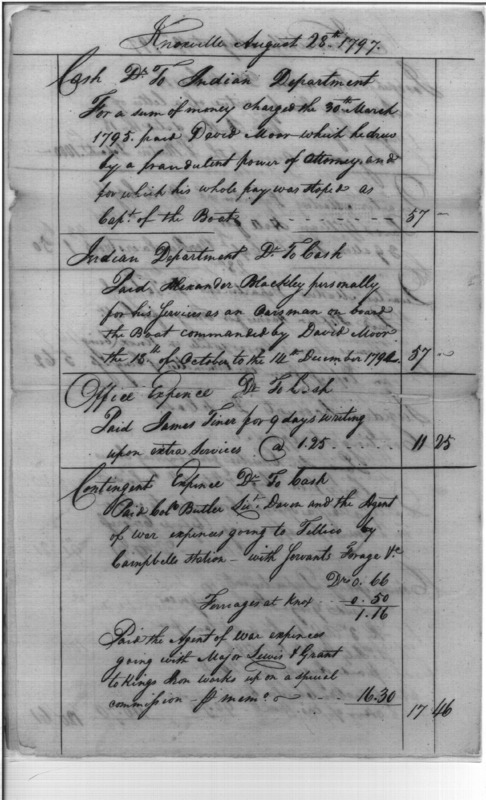 Knoxville August 28th 1797.
Cash Dr. To Indian Department
For a sum of money charged the 30th March
1795. paid David Moor which he drew
by a fraudulent power of Attorney. and
for which his whole pay was stoped as
Capt. of the Boat 57 —
Indian Department Dr. To Cash
Paid Alexander Blackley personally
for his Services as an Oarsman on board
the Boat commanded by David Moor
the 15th of October to the 14th December 1794. 57 —
Office Expence Dr To Cash
Paid James Finer for 9 days writing
upon extra Services @ 1.25 11 25
Contingent Expence Dr. To Cash
Paid Colo. Butler Lieut. Davon and the Agent
of War expences going to Tellico by
Campbells Station — with Servants Forage &c
Drs 0. 66
Ferriages at Knox 0. 50
1.16
Paid the Agent of War expences
going with Major Lewis & Grant
to Kings Iron works upon a special
commission — pr memo. 16.30
17 46